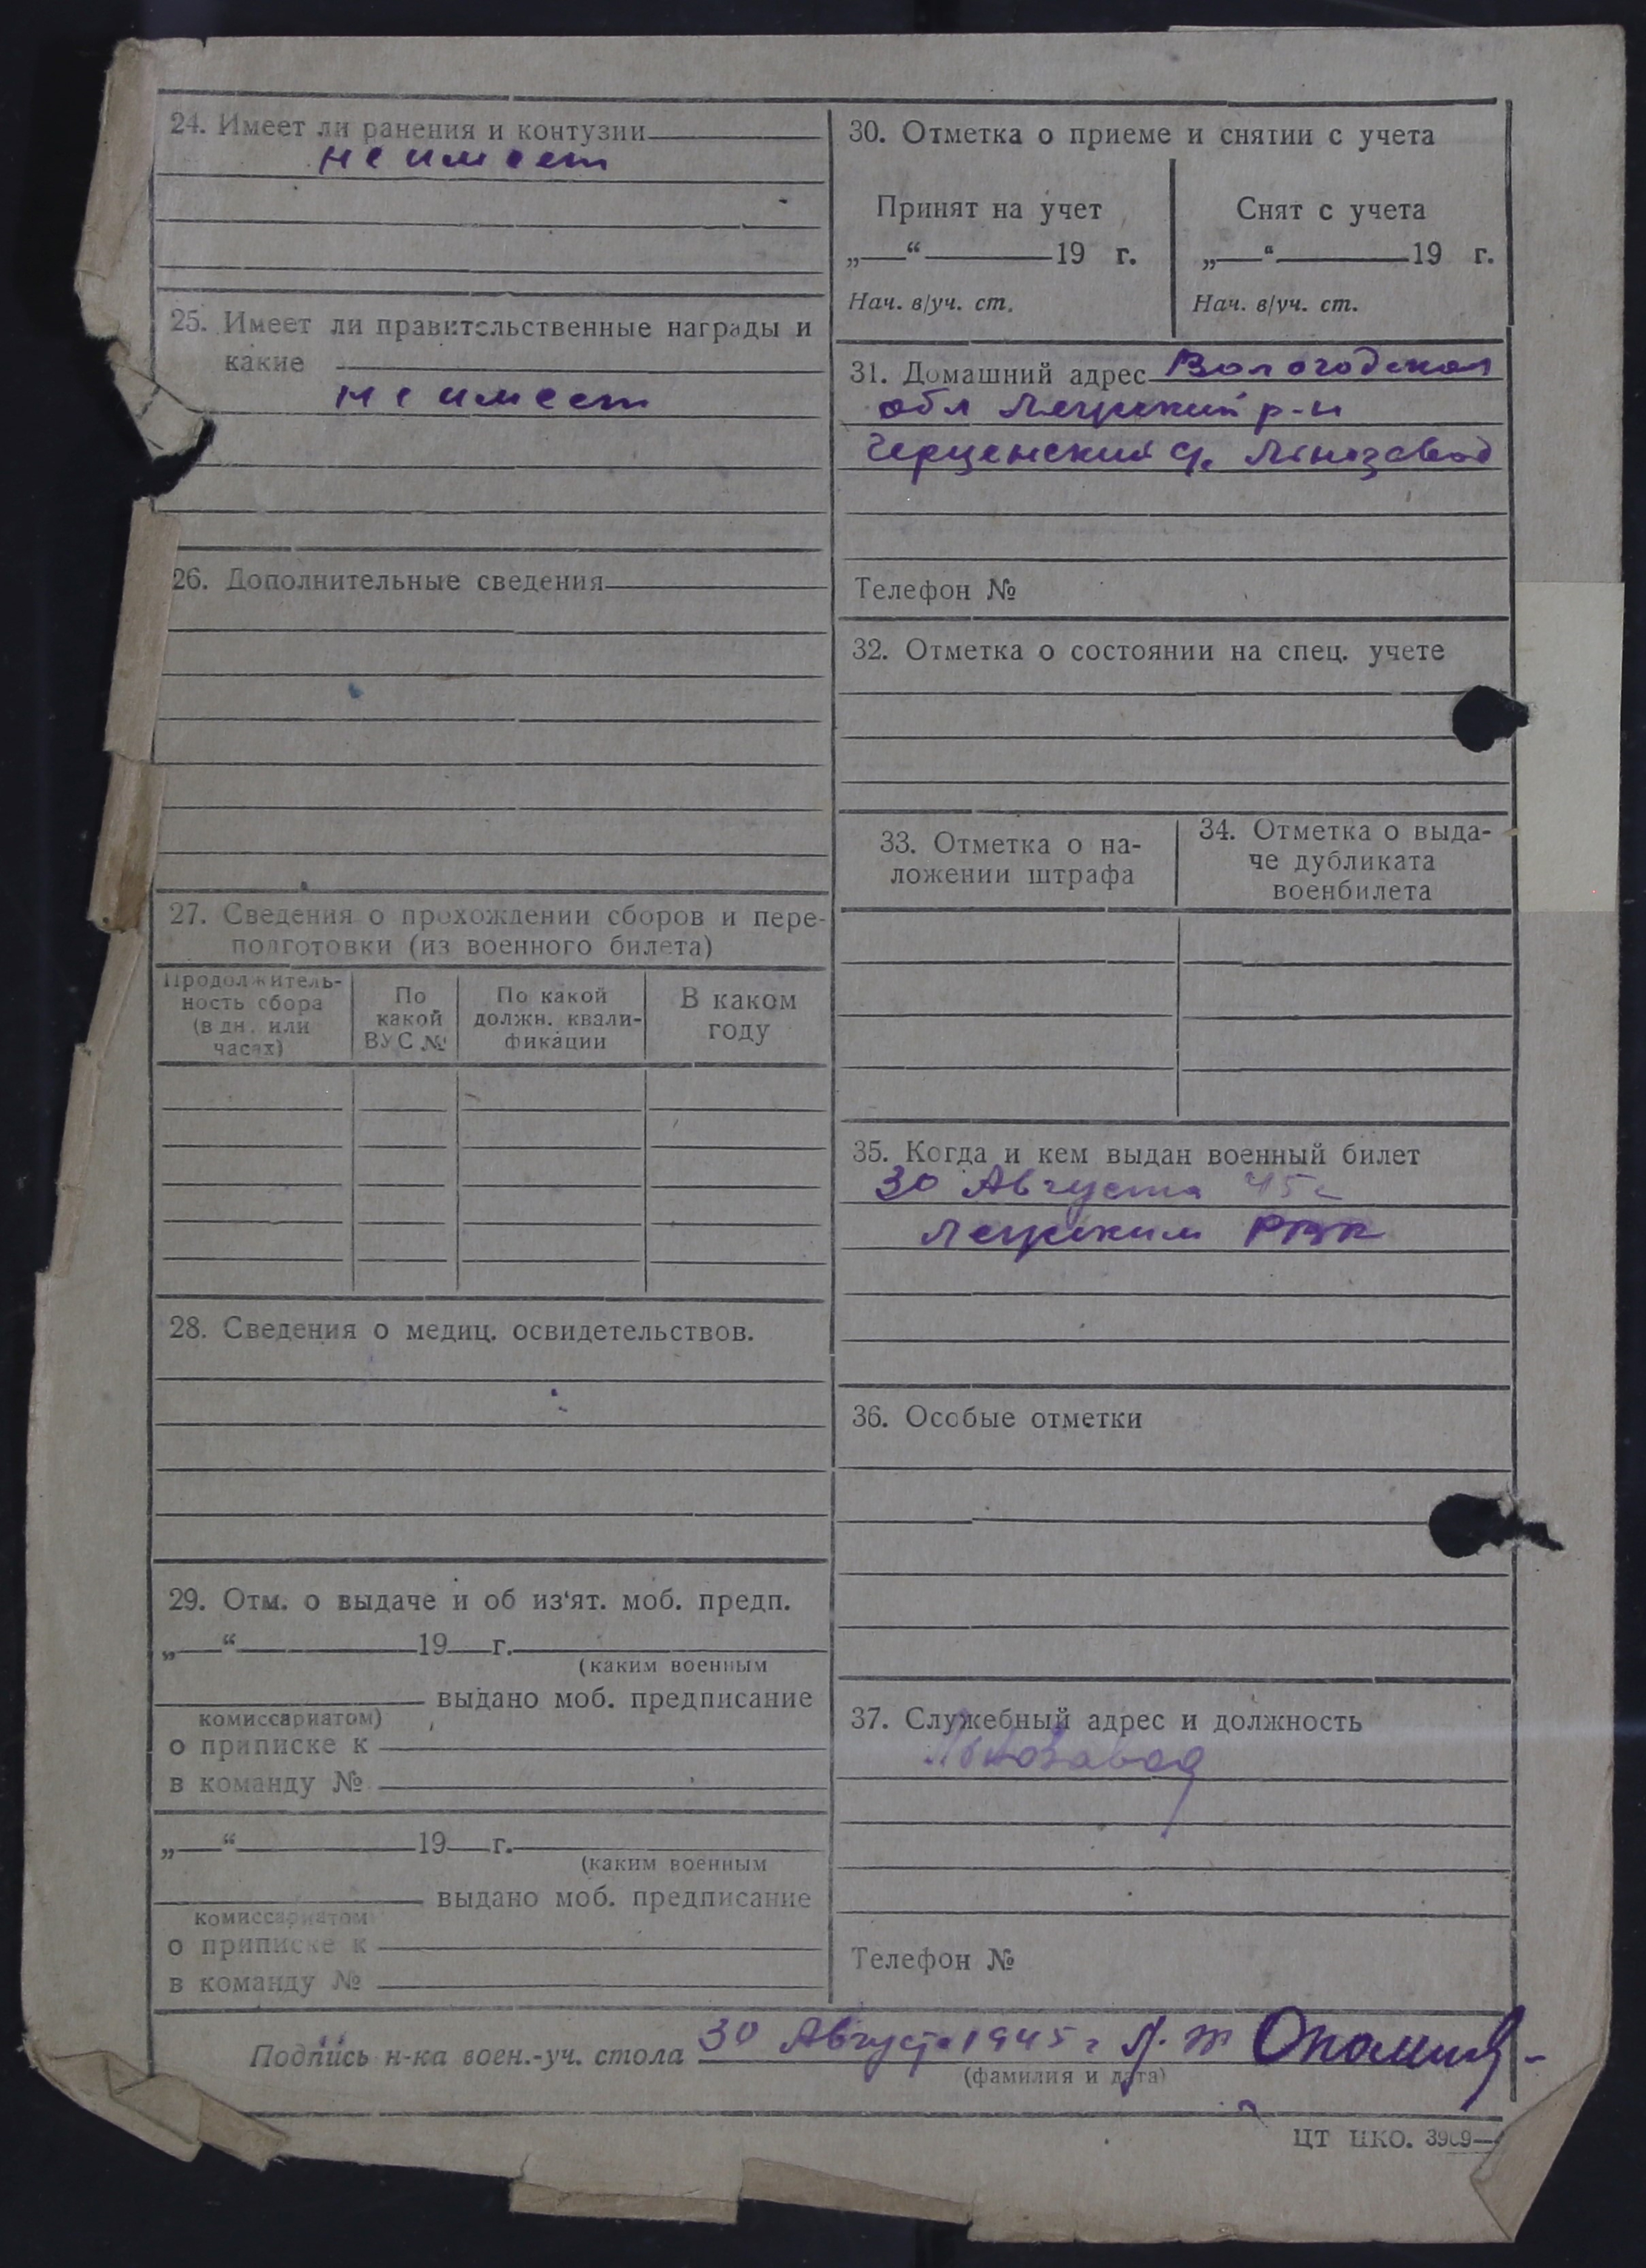 24. Имеет ли ранения и контузии
не имеет
25. Имеет ли правительственные награды и
какие
не имеет
26. Дополнительные сведения
27. Сведения о прохождении сборов и пере-
подготовки (из военного билета)
Продолжитель-
ность сбора
(в дн. или
часах)
По
какой
ВУС №
По какой
должн. квали-
фикации
В каком
году
28. Сведения о медиц. освидетельствов.
29. Отм. о выдаче и об из'ят. моб. предп.
„ “ 19 г.
(каким военным
выдано моб. предписание
комиссариатом)
о приписке к
в команду №
„ “ 19 г.
(каким военным
выдано моб. предписание
комиссариатом
о приписке к
в команду №
30. Отметка о приеме и снятии с учета
Принят на учет
„ “ 19 г.
Нач. в/уч. ст.
Снят с учета
„ “ 19 г.
Нач. в/уч. ст.
31. Домашний адрес Вологодская
обл р-н
Льнозавод
Телефон №
32. Отметка о состоянии на спец. учете
33. Отметка о на-
ложении штрафа
34. Отметка о выда-
че дубликата
военбилета
35. Когда и кем выдан военный билет
30 Августа 45 г
РВК
36. Особые отметки
37. Служебный адрес и должность
Льнозавод
Телефон №
Подпись н-ка воен.-уч. стола 30 Августа 1945 г
(фамилия и дата)
ЦТ НКО. 3969—